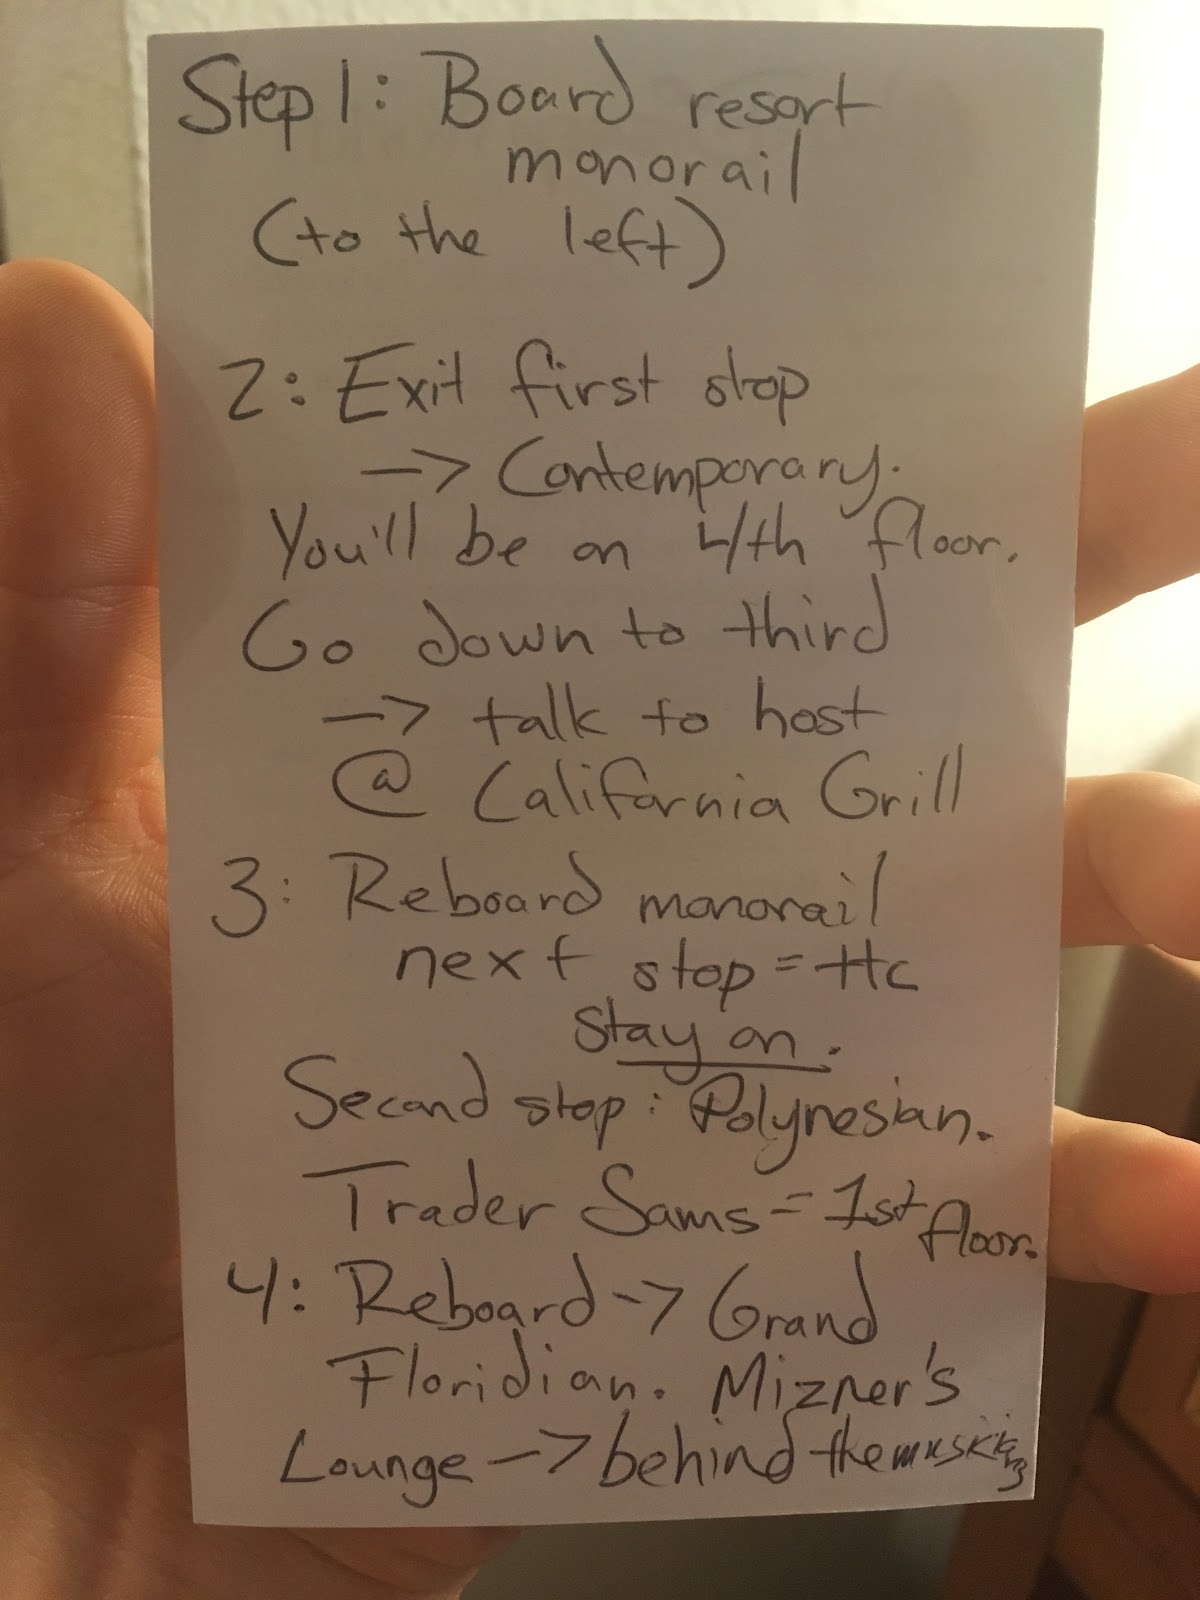 Step 1: Board resort
monorail
(to the left)
2: Exit first stop
-> Contemporary.
You'll be on 4th floor.
Go down to third
-> talk to host
@ California Grill
3: Reboard monorail
next stop = ttc
stay on.
Second stop: Polynesian.
Trader Sams = 1st floor.
4: Reboard -> Grand
Floridian. Mizner's
Lounge -> behind the